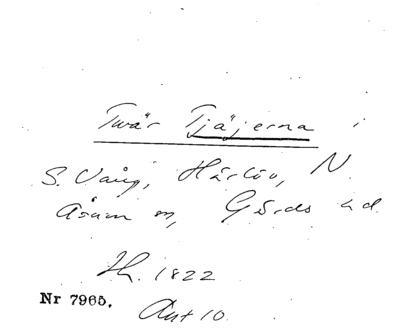 Twär Tjäjerna i
S. Vång, Härlöv, N.
Åsum sn, Gärds hd.
Jh. 1822
Nr 7965. Avt 10